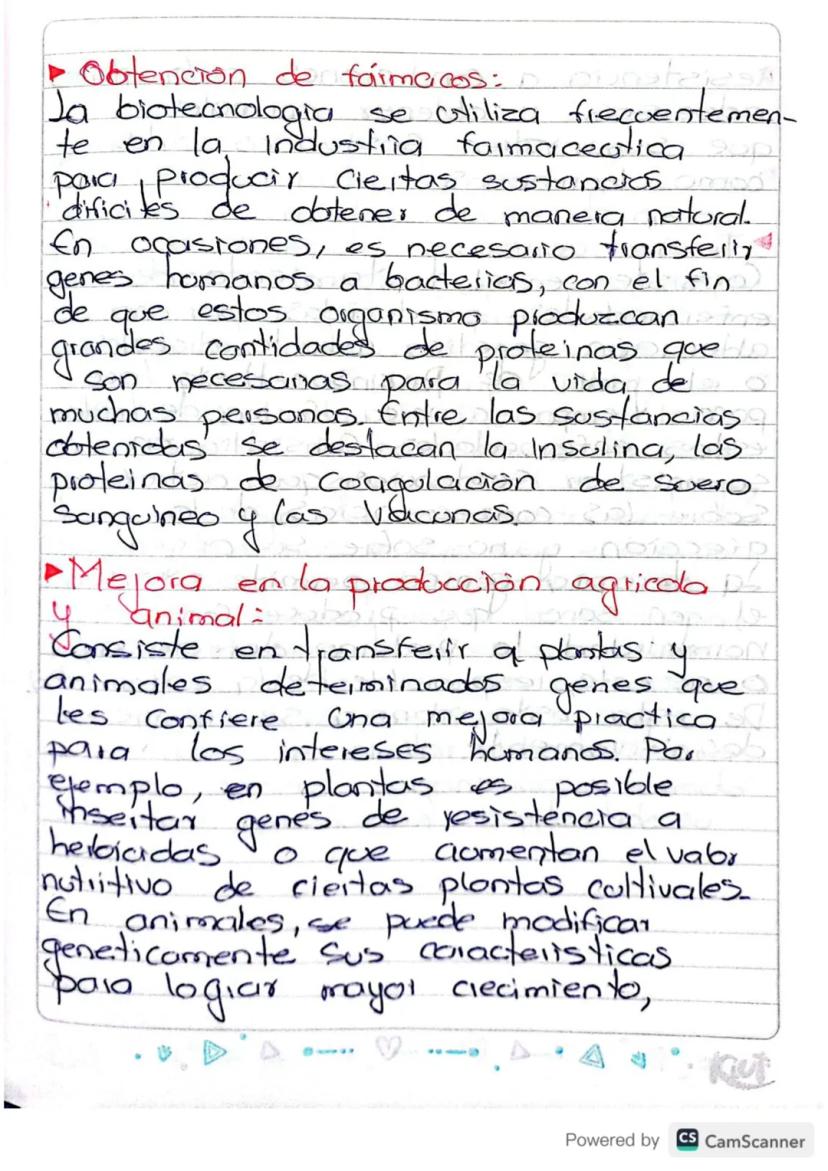 ▸ Obtención de fármacos:
La biotecnologia se utiliza frecuentemen-
te en la industria farmaceutica
para producir Ciertas sustancias
dificiles de obtener de manera natural.
En ocasiones, es necesario transferir
genes humanos a bacterias, con el fin
de que estos organismo produzcan
grandes cantidades de proteinas que
son necesarias para la vida de
muchas personas. Entre las sustancias
obtenidas se destacan la Insulina, las
proteinas de Coagulación de suero
Sanguineo y las Vacunas.
▸ Mejora en la producción agricola
y animal:
Consiste en transferir a plantas y
animales determinados genes que
les confiere una mejora practica
para los intereses humanos. Por
ejemplo, en plantas es posible
insertar genes de resistencia a
herbicidas o que aumentan el valor
nutritivo de ciertas plantas cultivales.
En animales, se puede modificar
geneticamente sus caracteristicas
para lograr mayor crecimiento,
Kiut
Powered by CS CamScanner